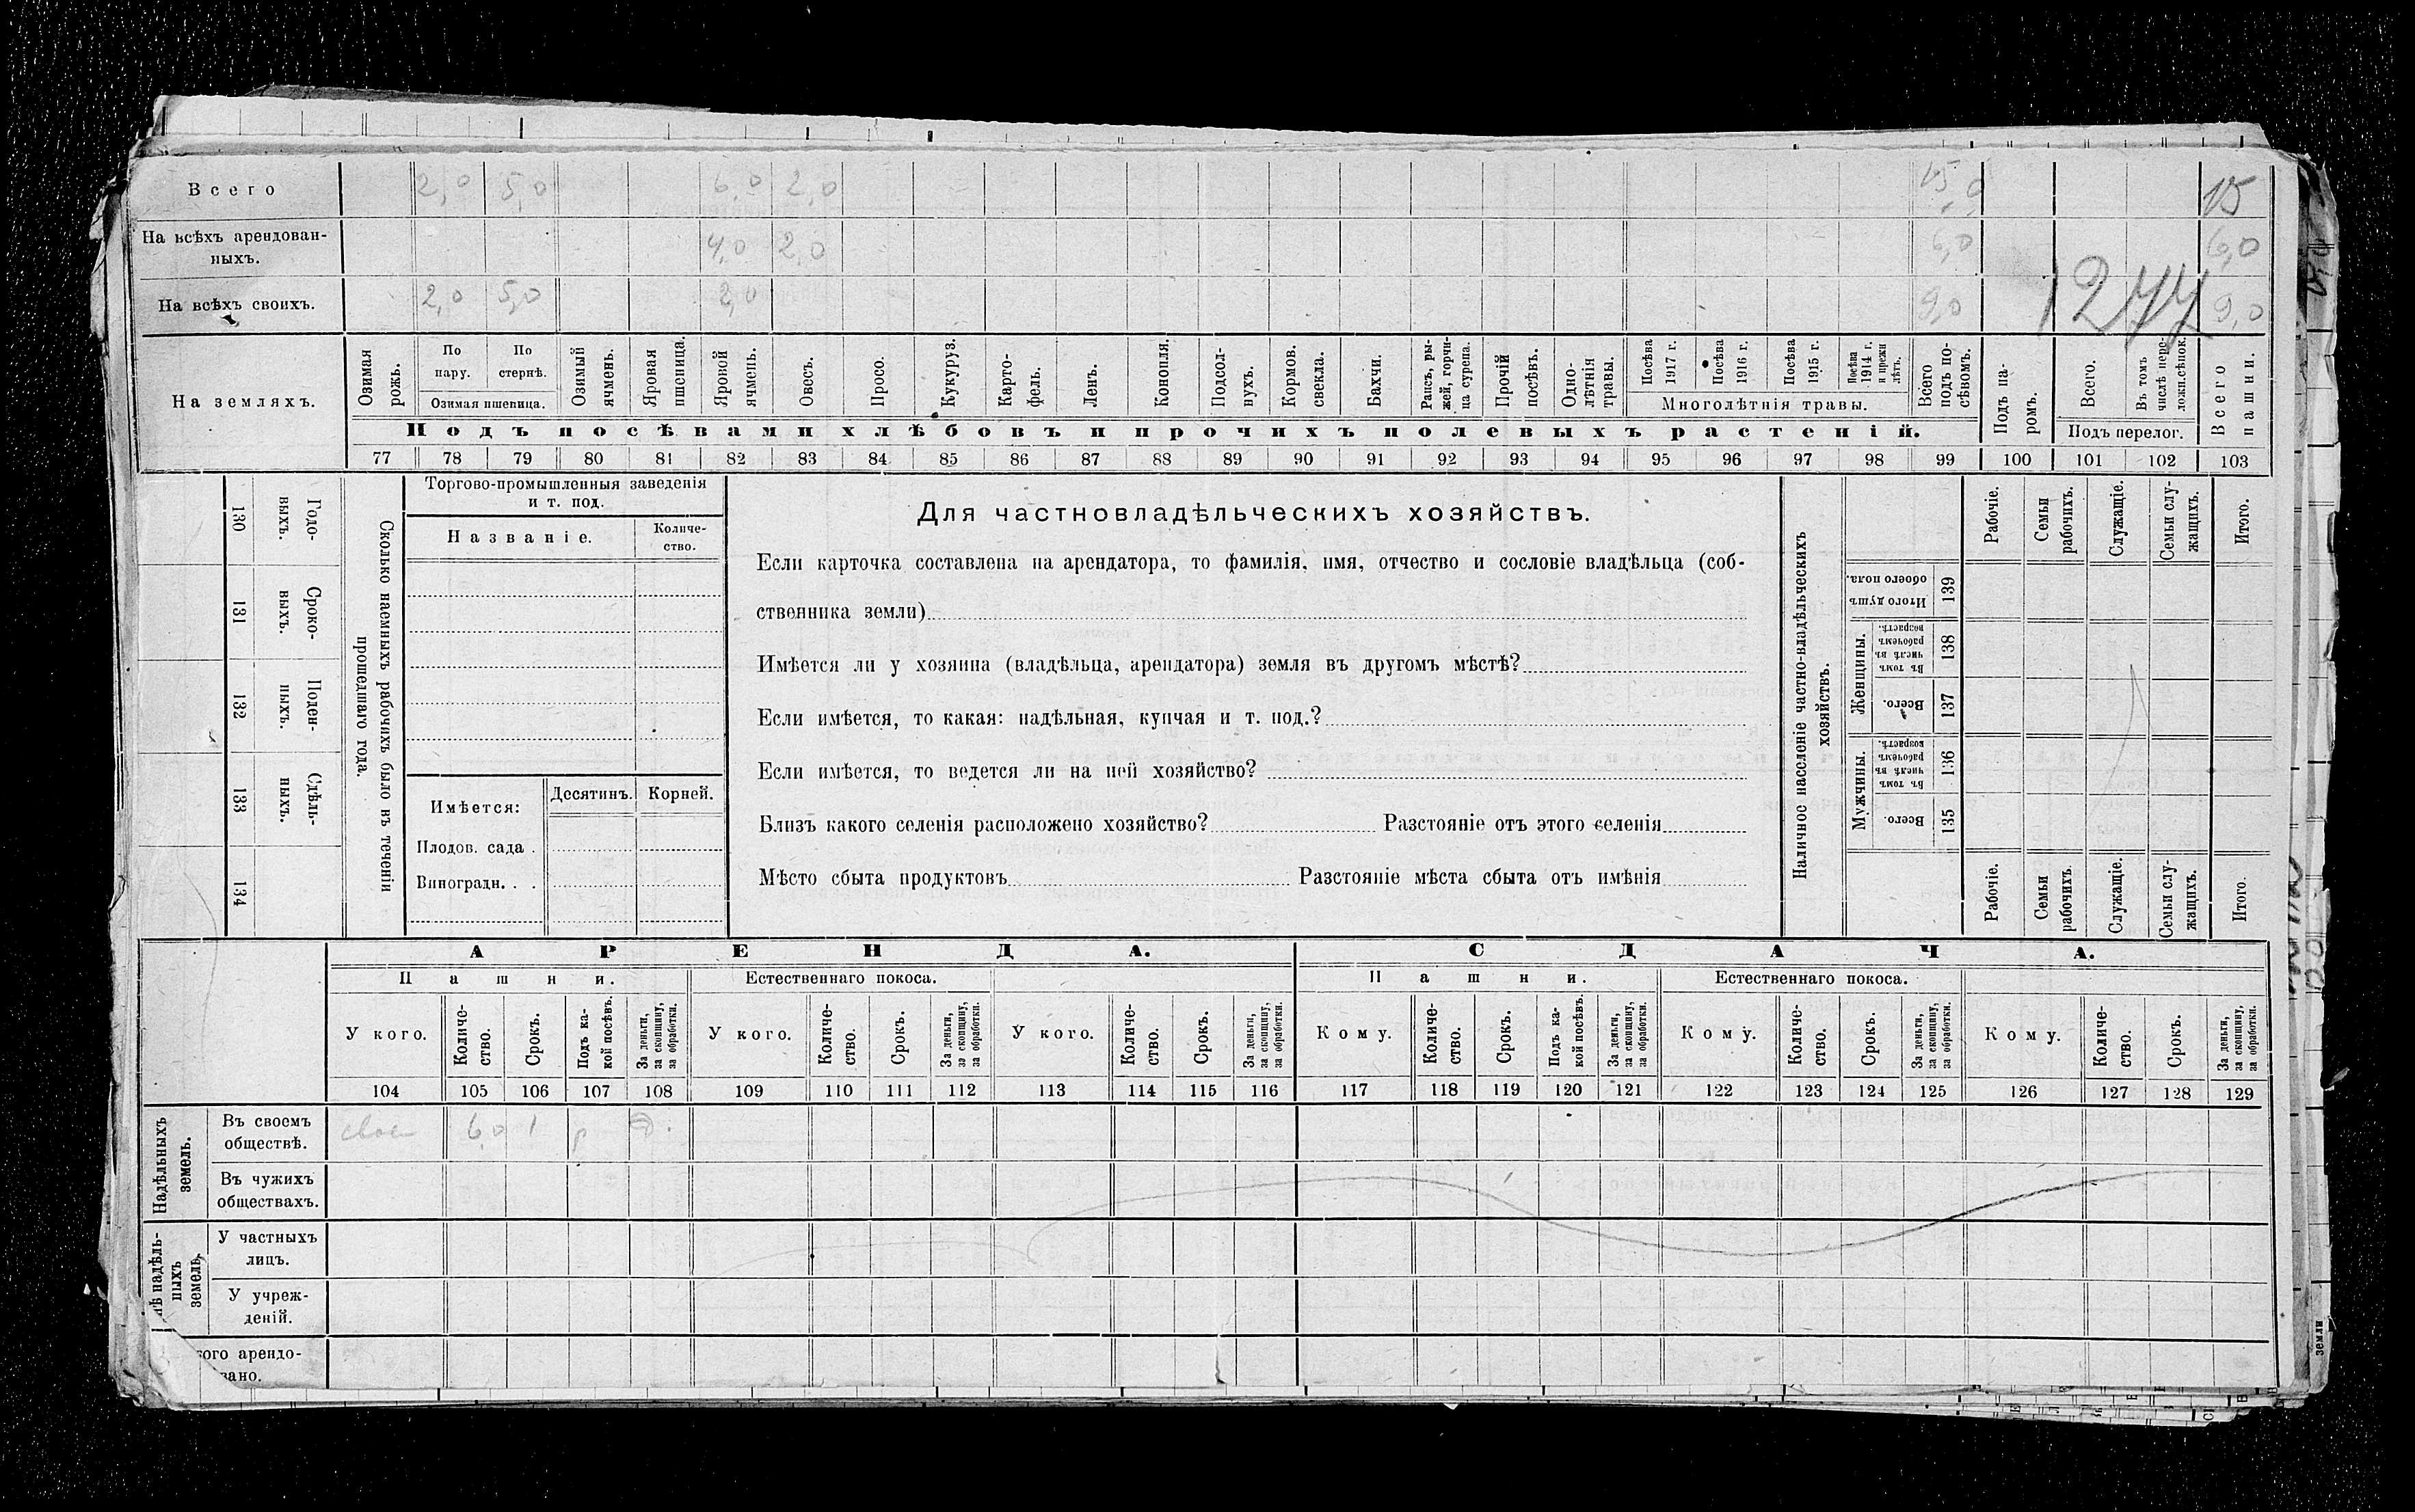 Всего 2,0 5,0 6,0 2,0 15,0 15
На всѣхъ арендован-
ныхъ. 4,0 2,0 6,0 6,0
На всѣхъ своихъ. 2,0 5,0 2,0 9,0 9,0
1277
На земляхъ.
Озимая рожь.
По пару.
По стернѣ.
Озимая пшеница.
Озимый ячмень.
Яровая пшеница.
Яровой ячмень.
Овесъ.
Просо.
Кукуруз.
Карто-
фель.
Ленъ.
Конопля.
Подсол-
нухъ.
Кормов.
свекла.
Бахчи.
Рапсъ, ры-
жей, горчи-
ца сурепа.
Прочій
посѣвъ.
Одно-
лѣтнія
травы.
Посѣва
1917 г.
Посѣва
1916 г.
Посѣва
1915 г.
Посѣва
1914 г.
и прежн
лѣтъ.
Многолѣтнія травы.
Всего
подъ по-
сѣвомъ.
Подъ па-
ромъ.
Всего.
Въ томъ
числѣ пере-
ложн.сѣнок.
Подъ перелог.
Всего
пашни.
Подъ посѣвами хлѣбовъ и прочихъ полевыхъ растеній.
77 78 79 80 81 82 83 84 85 86 87 88 89 90 91 92 93 94 95 96 97 98 99 100 101 102 103
130 Годо-
выхъ.
131 Сроко-
ныхъ.
132 Поден-
ныхъ.
133 Сдѣль-
ныхъ.
134
Сколько наемныхъ рабочихъ было въ теченіи
прошедшаго года.
Торгово-промышленныя заведенія
и т. под.
Названіе.
Количе-
ство.
Имѣется:
Десятинъ.
Корней.
Плодов. сада .
Виноградн. . .
Для частновладѣльческихъ хозяйствъ.
Если карточка составлена на арендатора, то фамилія, имя, отчество и сословіе владѣльца (соб-
ственника земли)
Имѣется ли у хозяина (владѣльца, арендатора) земля въ другомъ мѣстѣ?
Если имѣется, то какая: надѣльная, купчая и т. под.?
Если имѣется, то ведется ли на ней хозяйство?
Близъ какого селенія расположено хозяйство? Разстояніе отъ этого селенія
Мѣсто сбыта продуктовъ Разстояніе мѣста сбыта отъ имѣнія
Наличное населеніе частно-владѣльческихъ
хозяйствъ.
Рабочіе.
Семьи
рабочихъ.
Служащіе.
Семьи слу-
жащихъ.
Итого.
Итого душъ
обоего пола.
139
Женщины.
Въ томъ
числѣ въ
рабочемъ
возрастѣ.
138
Всего.
137
Мужчины.
Въ томъ
числѣ въ
рабочемъ
возрастѣ.
136
Всего.
135
Рабочіе.
Семьи
рабочихъ.
Служащіе.
Семьи слу-
жащихъ.
Итого.
АРЕНДА. СДАЧА.
Пашни. Естественнаго покоса. Пашни. Естественнаго покоса.
У кого.
Количе-
ство.
Срокъ.
Подъ ка-
кой посѣвъ.
За деньги,
за скопщину,
за обработки.
У кого.
Количе-
ство.
Срокъ.
За деньги,
за скопщину,
за обработки.
У кого.
Количе-
ство.
Срокъ.
За деньги,
за скопщину,
за обработки.
Кому.
Количе-
ство.
Срокъ.
Подъ ка-
кой посѣвъ.
За деньги,
за скопщину,
за обработки.
Кому.
Количе-
ство.
Срокъ.
За деньги,
за скопщину,
за обработки.
Кому.
Количе-
ство.
Срокъ.
За деньги,
за скопщину,
за обработки.
104 105 106 107 108 109 110 111 112 113 114 115 116 117 118 119 120 121 122 123 124 125 126 127 128 129
Надѣльныхъ
земель.
Въ своемъ
обществѣ. 6,0 1
Въ чужихъ
обществахъ.
надѣль-
ныхъ
земель.
У частныхъ
лицъ.
У учреж-
деній.
арендо-
вано.
земли